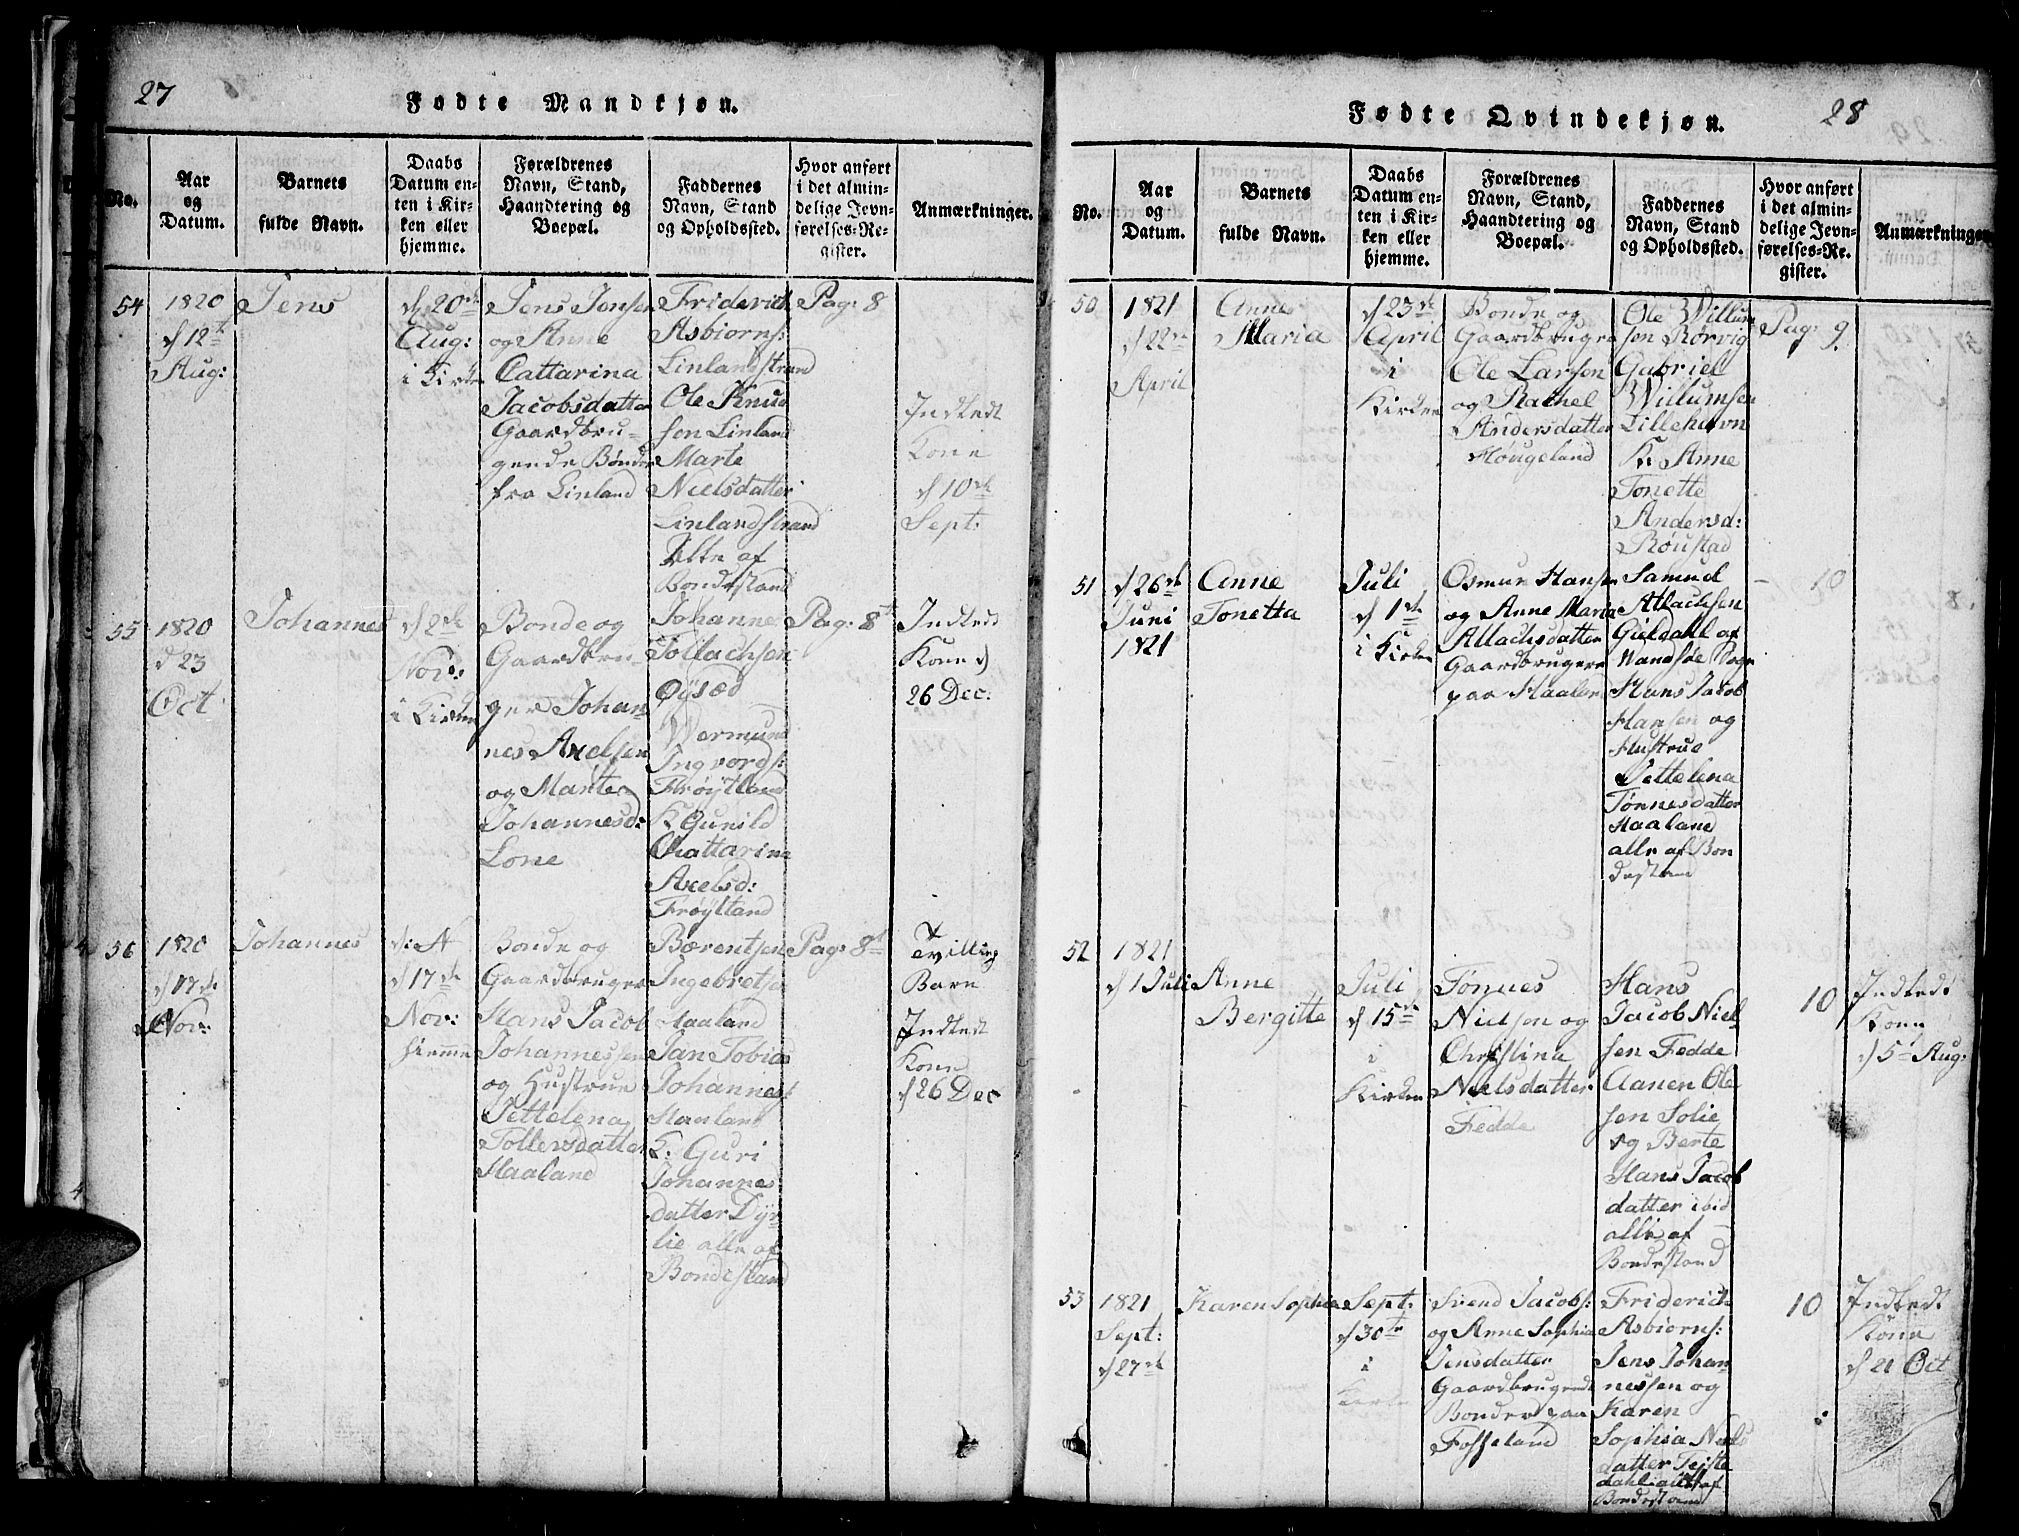 27
Fødte Mandkjøn.
No.
Aar
og
Datum.
Barnets
fulde Navn.
Daabs
Datum en-
ten i Kir-
ken eller
hjemme.
Forældrenes
Navn, Stand,
Haandtering og
Boepæl.
Faddernes
Navn, Stand
og Opholdssted.
Hvor anført
i det almin-
delige Jevn-
førelses-Re-
gister.
Anmærkninger.
54
1820
d 12te
Aug:
Jens
d 20de
Aug:
i Kirken
Jens Jensen
og Anne
Cattarina
Jacobsdatter
Gaardbru-
gende Bønder
fra Linland
Friderich
Asbiørns:
Linlandstrand
Ole Knud
sen Linland
Marte
Nielsdatter
Linlandstrand
alle af
Bondestand
Pag: 8
Indledt
Kone
d 10de
Sept:
55
1820
d 23
Oct
Johannes
d 2de
Nov:
i Kirken
Bonde og
Gaardbru-
ger Johan
nes Axelsen
og Marte
Johannesd:
Lone
Johannes
Tollachsen
Øysæd
Wermund
Ingvords:
Frøytland
K Gunild
Chattarina
Axelsd:
Frøytland
Pag: 8de
Indledt
Konn d
26 Dec:
56
1820
d 17de
Nov:
Johannes
d: A
d 17de
Nov:
hiemme
Bonde og
Gaardbruger
Hans Jacob
Johannessen
og Hustrue
Jettelena
Tollefsdatter
Haaland
Bærentsen
Ingebretsn
Haaland
Jan Tobias
Johannes:
Haaland
K: Guri
Johannes
datter Dyr
lie alle af
Bondestand
Pag: 8de
Tvilling
Barn
Indledt
Konn
d 26 Dec
28
Fødte Qvindekjøn.
No.
Aar
og
Datum.
Barnets
fulde Navn.
Daabs
Datum en-
ten i Kir-
ken eller
hjemme.
Forældrenes
Navn, Stand,
Haandtering og
Boepæl.
Faddernes
Navn, Stand
og Opholdssted.
Hvor anført
i det almin-
delige Jevn-
førelses-Re-
gister.
Anmærkninger
50
1821
d 22de
April
Anne
Maria
d 23de
April
i
Kirken
Bonde og
Gaardbruger
Ole Larsen
og Rachel
Andersdatter
Høugeland
Ole Willum
sen Rørvig
Gabriel
Willumsen
Lillehavn
K: Anne
Tonette
Andersd:
Røustad
Pag: 9
51
d 26de
Juni
1821
Anne
Tonetta
Juli
d 1ste
i Kirken
Osmun Hansen
og Anne Maria
Atlachsdatter
Gaardbrugere
paa Haaland
Samuel
Atlachsen
Gieldahl af
Wandsøe Sogn
Hans Jacob
Hansen og
Hustrue
Jettelena
Tønnesdatter
Haaland
alle af Bon
destand
10
52
1821
d 1 Juli
Anne
Bergitte
Juli
d 15de
i
Kirken
Tønnes
Nielsen og
Christina
Nielsdatter
Fedde
Hans
Jacob Niel
sen Fedde
Aanen Ole
sen Solie
og Berte
Hans Jacob
datter ibid
alle af
Bondestand
10
Indledt
Konn
d 5te Aug:
53
1821
Sept:
d 27de
Karen Sophia
Sept:
d 30te
i
Kirken
Svend Jacobs:
og Anne Sophia
Jensdatter
Gaardbrugende
Bonder paa
Fosseland
Friderich
Asbiørns:
Jens Johan
nessen og
Karen
Sophia Niels
datter Teiste
dahl alle af
Bondestand
10
Indledt
Konn
d 21 Oct